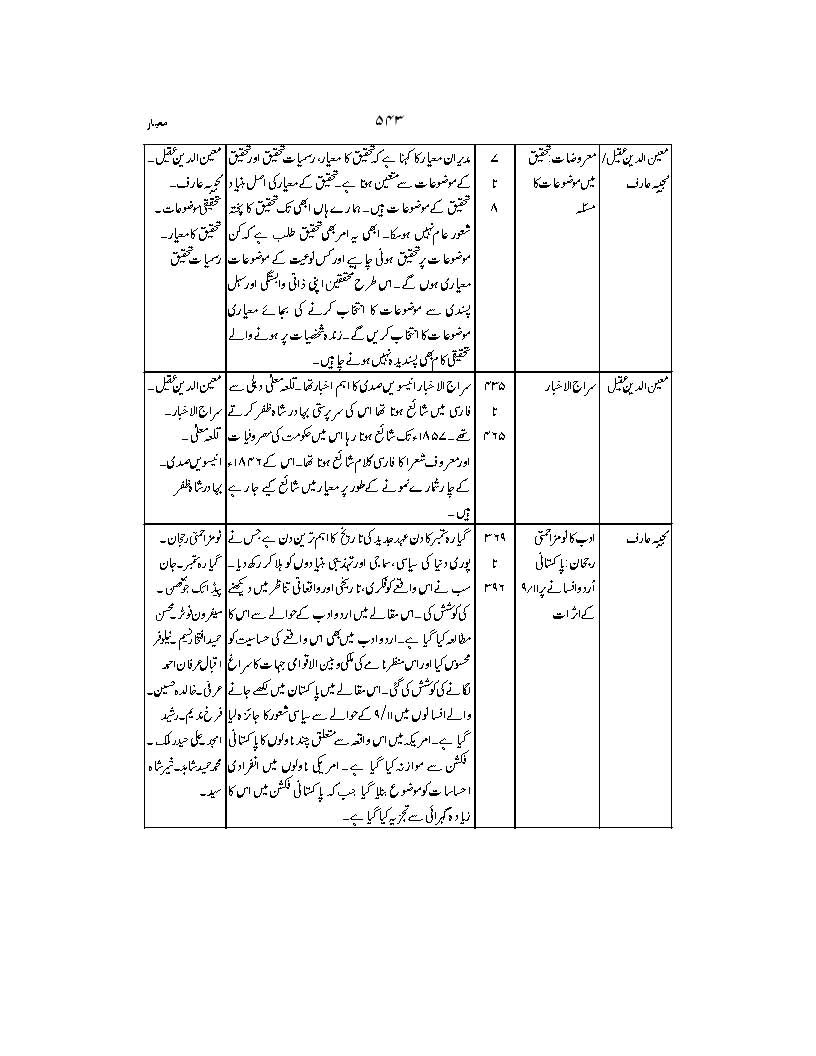 معیار
۵۴۳
معین الدین عقیل/
نجیبہ عارف
معروضات: تحقیق
میں موضوعات کا
مسئلہ
۷
تا
۸
مدیران معیار کا کہنا ہے کہ تحقیق کا معیار، رسمیات تحقیق اور تحقیق
کے موضوعات سے متعین ہوتا ہے۔ تحقیق کے معیار کی اصل بنیاد
تحقیق کے موضوعات ہیں۔ ہمارے ہاں ابھی تک تحقیق کا پختہ
شعور عام نہیں ہوسکا۔ ابھی یہ امر بھی تحقیق طلب ہے کہ کن
موضوعات پر تحقیق ہونی چاہیے اور کس نوعیت کے موضوعات
معیاری ہوں گے۔ اس طرح محققین اپنی ذاتی وابستگی اور سہل
پسندی سے موضوعات کا انتخاب کرنے کی بجائے معیاری
موضوعات کا انتخاب کریں گے۔ زندہ شخصیات پر ہونے والے
تحقیقی کام بھی پسندیدہ نہیں ہونے چاہیں۔
معین الدین عقیل۔
نجیبہ عارف۔
تحقیقی موضوعات۔
تحقیق کا معیار۔
رسمیات تحقیق
معین الدین عقیل
سراج الاخبار
۴۳۵
تا
۴۶۵
سراج الاخبار انیسویں صدی کا اہم اخبار تھا۔ قلعہ معلیٰ دہلی سے
فارسی میں شائع ہوتا تھا اس کی سرپرستی بہادر شاہ ظفر کرتے
تھے۔ ۱۸۵۷ء تک شائع ہوتا رہا اس میں حکومت کی مصروفیات
اور معروف شعرا کا فارسی کلام شائع ہوتا تھا۔ اس کے ۱۸۴۶ء
کے چار شمارے نمونے کے طور پر معیار میں شائع کیے جارہے
ہیں۔
معین الدین عقیل۔
سراج الاخبار۔
قلعہ معلیٰ۔
انیسویں صدی۔
بہادر شاہ ظفر
نجیبہ عارف
ادب کا نومزاحمتی
رجحان: پاکستانی
اُردو افسانے پر ۹/۱۱
کے اثرات
۳۶۹
تا
۳۹۶
گیارہ ستمبر کا دن عہد جدید کی تاریخ کا اہم ترین دن ہے جس نے
پوری دنیا کی سیاسی، سماجی اور تہذیبی بنیادوں کو ہلا کر رکھ دیا۔
سب نے اس واقعے کو فکری، تاریخی اور واقعاتی تناظر میں دیکھنے
کی کوشش کی۔ اس مقالے میں اردو ادب کے حوالے سے اس کا
مطالعہ کیا گیا ہے۔ اردو ادب میں بھی اس واقعے کی حساسیت کو
محسوس کیا اور اس منظرنامے کی ملکی و بین الاقوامی جہات کا سراغ
لگانے کی کوشش کی گئی۔ اس مقالے میں پاکستان میں لکھے جانے
والے افسانوں میں ۹/۱۱ کے حوالے سے سیاسی شعور کا جائزہ لیا
گیا ہے۔ امریکہ میں اس واقعہ سے متعلق چند ناولوں کا پاکستانی
فکشن سے موازنہ کیا گیا ہے۔ امریکی ناولوں میں انفرادی
احساسات کو موضوع بنایا گیا جب کہ پاکستانی فکشن میں اس کا
زیادہ گہرائی سے تجزیہ کیا گیا ہے۔
نومزاحمتی رجحان۔
گیارہ ستمبر۔ جان
اپڈائک جوتھن۔
سیفرون فوئر۔ محسن
حمید افتخار نسیم۔ نیلوفر
اقبال عرفان احمد
عرفی۔ خالدہ حسین۔
فرخ ندیم۔ رشید
امجد۔ علی حیدر ملک۔
محمد حمید شاہد۔ نیر شاہ
سید۔